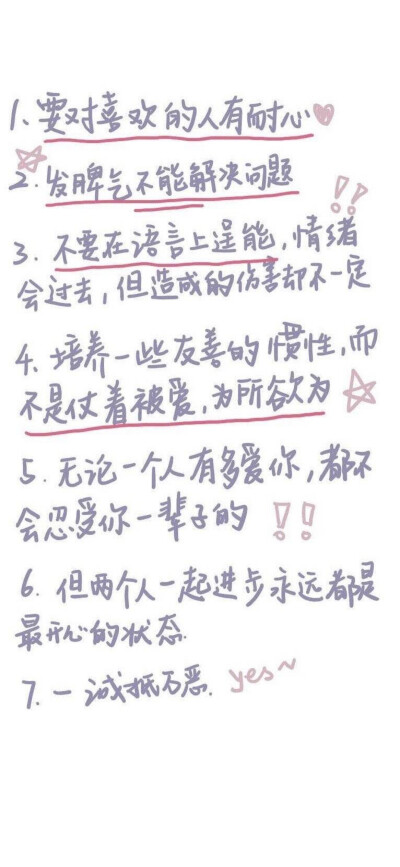 1、要对喜欢的人有耐心
2.发脾气不能解决问题
3.不要在语言上逞能,情绪
会过去,但造成的伤害却不一定
4.培养一些友善的惯性,而
不是仗着被爱,为所欲为
5.无论一个人有多爱你,都不
会忍受你一辈子的!!
6.但两个人一起进步永远都是
最开心的状态.
7.一诚抵万恶.yes~